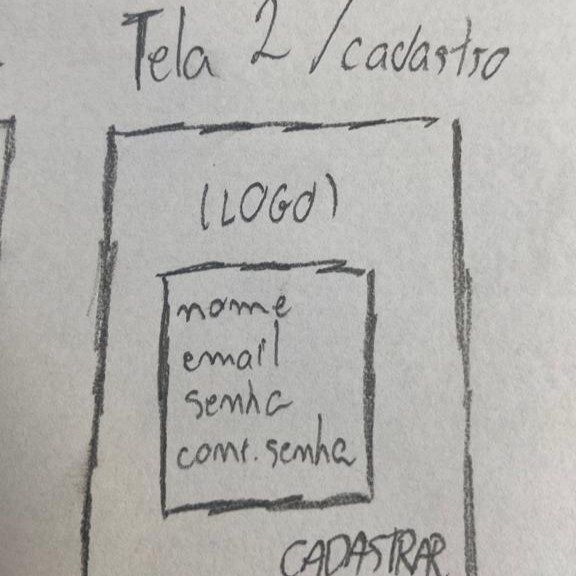 Tela 2 / cadastro
(LOGO)
nome
email
senha
conf. senha
CADASTRAR